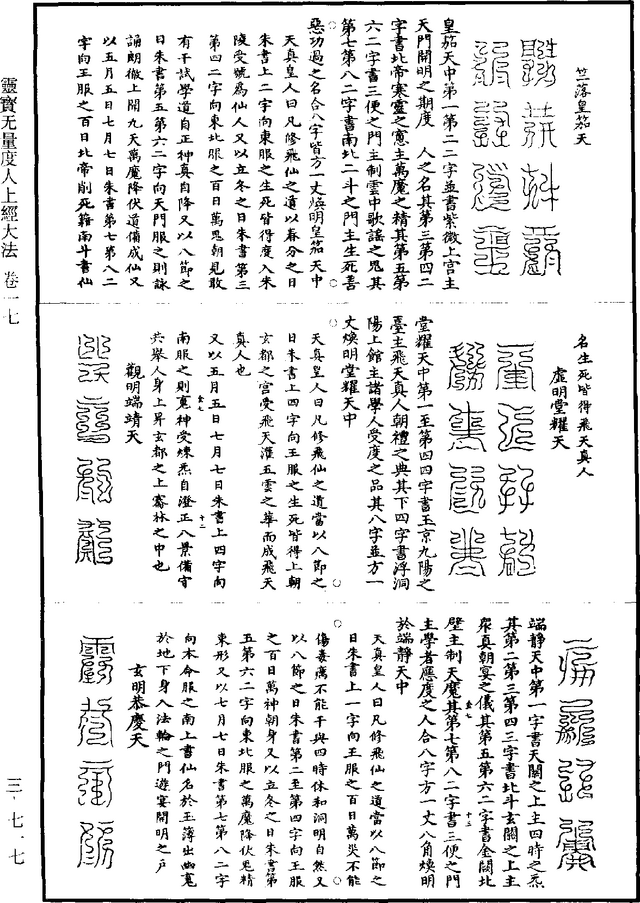 竺落皇笳天
皇笳天中第一第二二字並書紫微上宮主
天門開明之期度人之名其第三第四二
字書北帝寒靈之憲主萬魔之精其第五第
六二字書三便之門主制雲中歌謠之鬼其
第七第八二字書南北二斗之門主生死善
惡功過之名合八字皆方一丈煥明皇笳天中
天真皇人曰凡修飛仙之道以春分之日
朱書上二字向東服之生死皆得度入朱
陵受號為仙人又以立冬之日朱書第三
第四二字向東北服之百日萬鬼朝見敢
有干試學道自正神真自降又以八節之
日朱書第五第六二字向天門服之則詠
誦朗徹上聞九天萬魔降伏道備成仙又
以五月五日七月七日朱書第七第八二
字向王服之百日北帝削死籍南斗書仙
名生死皆得飛天真人
虛明堂耀天
堂耀天中第一至第四四字書玉京九陽之
臺主飛天真人朝禮之典其下四字書浮洞
陽上館主諸學人受度之品其八字並方一
丈煥明堂耀天中
天真皇人曰凡修飛仙之道當以八節之
日朱書上四字向王服之生死皆得上朝
玄都之宮受飛天灌五雲之華而成飛天
真人也
又以五月五日七月七日朱書上四字向
南服之則真神受煉炁自澄正八景備守
共舉人身上昇玄都之上騫林之中也
觀明端靖天
端靜天中第一字書天關之上主四時之炁
其第二第三第四三字書北斗玄關之上主
眾真朝宴之儀其第五第六二字書金闕北
壁主制天魔其第七第八二字書三便之門
主學者應度之人合八字方一丈八角煥明
於端靜天中
天真皇人曰凡修飛仙之道當以八節之
日朱書上一字向王服之百日萬災不能
傷毒癘不能干與四時休和洞明自然又
以八節之日朱書第二至第四字向王服
之百日萬神朝身又以立冬之日朱書第
五第六二字向東北服之萬魔降伏鬼精
束形又以七月七日朱書第七第八二字
向本命服之南上書仙名於玉簿出幽冤
於地下身入法輪之門遊宴開明之戶
玄明恭慶天
靈寶无量度人上經大法 卷一七
三·七·七